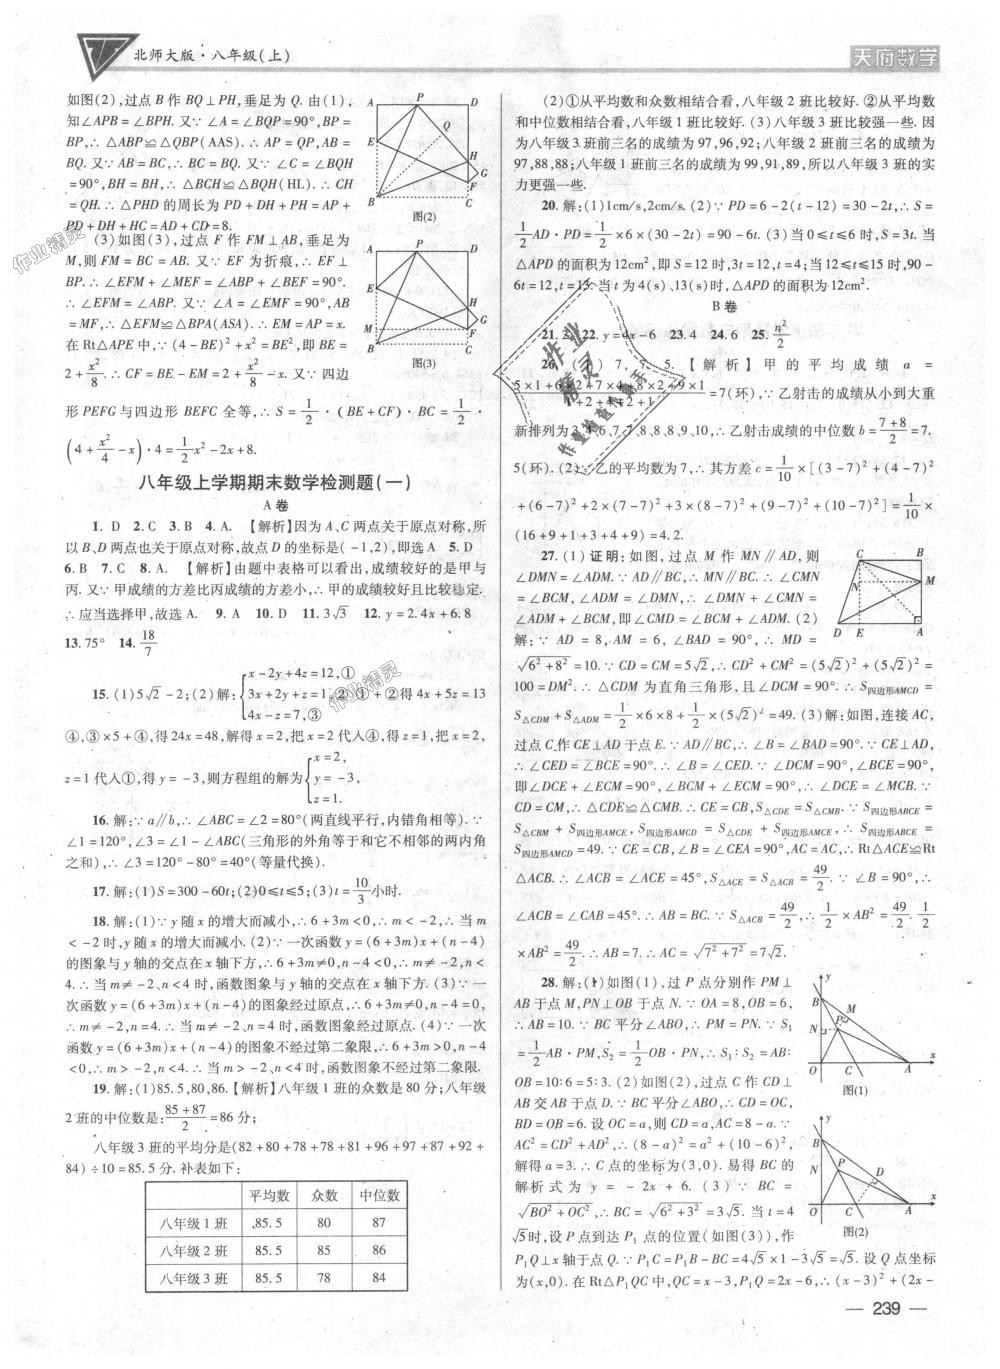 北师大版·八年级(上)
天府数学
如图(2),过点B作BQ⊥PH,垂足为Q. 由(1),
知∠APB=∠BPH. 又∵∠A=∠BQP=90°,BP=
BP,∴△ABP≌△QBP(AAS). ∴AP=QP,AB=
BQ. 又∵AB=BC,∴BC=BQ. 又∵∠C=∠BQH
=90°,BH=BH,∴△BCH≌△BQH(HL). ∴CH
=QH. ∴△PHD的周长为PD+DH+PH=AP+
PD+DH+HC=AD+CD=8.
图(2)
(3)如图(3),过点F作FM⊥AB,垂足为
M,则FM=BC=AB. 又∵EF为折痕,∴EF⊥
BP.∴∠EFM+∠MEF=∠ABP+∠BEF=90°.
∴∠EFM=∠ABP. 又∵∠A=∠EMF=90°,AB
=MF,∴△EFM≌△BPA(ASA). ∴EM=AP=x.
在Rt△APE中,∵(4-BE)²+x²=BE²,即BE=
2+x²/8.∴CF=BE-EM=2+x²/8-x. 又∵四边
图(3)
形PEFG与四边形BEFC全等,∴S=1/2·(BE+CF)·BC=1/2·
(4+x²/4-x)·4=1/2x²-2x+8.
八年级上学期期末数学检测题(一)
A卷
1. D 2. C 3. B 4. A. 【解析】因为A、C两点关于原点对称,所
以B、D两点也关于原点对称,故点D的坐标是(-1,2),即选A 5. D
6. B 7. C 8. A. 【解析】由题中表格可以看出,成绩较好的是甲与
丙. 又∵甲成绩的方差比丙成绩的方差小,∴甲的成绩较好且比较稳定.
∴应当选择甲,故选A. 9. A 10. D 11. 3√3 12. y=2.4x+6.8
13. 75° 14. 18/7
15. (1)5√2-2;(2)解:{x-2y+4z=12,①
3x+2y+z=1,② ①+②得4x+5z=13
4x-z=7,③
④,③×5+④,得24x=48,解得x=2,把x=2代入④,得z=1,把x=2,
z=1代入①,得y=-3,则方程组的解为{x=2,
y=-3,
z=1.
16. 解:∵a∥b,∴∠ABC=∠2=80°(两直线平行,内错角相等). ∵
∠1=120°,∠3=∠1-∠ABC(三角形的外角等于和它不相邻的两内角
之和),∴∠3=120°-80°=40°(等量代换).
17. 解:(1)S=300-60t;(2)0≤t≤5;(3)t=10/3小时.
18. 解:(1)∵y随x的增大而减小,∴6+3m<0,∴m<-2,∴当m
<-2时,y随x的增大而减小. (2)∵一次函数y=(6+3m)x+(n-4)
的图象与y轴的交点在x轴下方,∴6+3m≠0,n-4<0,∴m≠-2,n<
4. ∴当m≠-2,n<4时,函数图象与y轴的交点在x轴下方. (3)∵一
次函数y=(6+3m)x+(n-4)的图象经过原点,∴6+3m≠0,n-4=0,
∴m≠-2,n=4. ∴当m≠-2,n=4时,函数图象经过原点. (4)∵一次
函数y=(6+3m)x+(n-4)的图象不经过第二象限,∴6+3m>0,n-4
<0,∴m>-2,n<4. ∴当m>-2,n<4时,函数图象不经过第二象限.
19. 解:(1)85.5,80,86.【解析】八年级1班的众数是80分;八年级
2班的中位数是:(85+87)/2=86分;
八年级3班的平均分是(82+80+78+78+81+96+97+87+92+
84)÷10=85.5分. 补表如下:
平均数 众数 中位数
八年级1班 85.5 80 87
八年级2班 85.5 85 86
八年级3班 85.5 78 84
(2)①从平均数和众数相结合看,八年级2班比较好. ②从平均数
和中位数相结合看,八年级1班比较好. (3)八年级3班比较强一些. 因
为八年级3班前三名的成绩为97,96,92;八年级2班前三名的成绩为
97,88,88;八年级1班前三名的成绩为99,91,89,所以八年级3班的实
力更强一些.
20. 解:(1)1cm/s,2cm/s. (2)∵PD=6-2(t-12)=30-2t,∴S=
1/2AD·PD=1/2×6×(30-2t)=90-6t. (3)当0≤t≤6时,S=3t. 当
△APD的面积为12cm²,即S=12时,3t=12,t=4;当12≤t≤15时,90-
6t=12,t=13. 当t为4(s)、13(s)时,△APD的面积为12cm².
B卷
21. 2 22. y=4x-6 23. 4 24. 6 25. n²/2
26. (1)7,7.5. 【解析】甲的平均成绩a=
(5×1+6×2+7×4+8×2+9×1)/(1+2+4+2+1)=7(环),∵乙射击的成绩从小到大重
新排列为3、4、6、7、7、8、8、8、9、10,∴乙射击成绩的中位数b=(7+8)/2=7.
5(环). (2)∵乙的平均数为7,∴其方差c=1/10×[(3-7)²+(4-7)²
+(6-7)²+2×(7-7)²+3×(8-7)²+(9-7)²+(10-7)²]=1/10×
(16+9+1+3+4+9)=4.2.
27. (1)证明:如图,过点M作MN∥AD,则
∠DMN=∠ADM. ∵AD∥BC,∴MN∥BC. ∴∠CMN
=∠BCM,∠ADM=∠DMN,∴∠DMN+∠CMN=
∠ADM+∠BCM,即∠CMD=∠BCM+∠ADM. (2)
解:∵AD=8,AM=6,∠BAD=90°,∴MD=
√(6²+8²)=10. ∵CD=CM=5√2,∴CD²+CM²=(5√2)²+(5√2)²=
100=DM². ∴△CDM为直角三角形,且∠DCM=90°. ∴S四边形AMCD=
S△CDM+S△ADM=1/2×6×8+1/2×(5√2)²=49. (3)解:如图,连接AC,
过点C作CE⊥AD于点E. ∵AD∥BC,∴∠B=∠BAD=90°. ∵CE⊥AD,
∴∠CED=∠BCE=90°. ∴∠B=∠CED. ∵∠DCM=90°,∠BCE=90°,
即∠DCE+∠ECM=90°,∠BCM+∠ECM=90°,∴∠DCE=∠MCB. ∵
CD=CM,∴△CDE≌△CMB. ∴CE=CB,S△CDE=S△CMB. ∵S四边形ABCE=
S△CBM+S四边形AMCE,S四边形AMCD=S△CDE+S四边形AMCE,∴S四边形ABCE=
S四边形AMCD=49. ∵CE=CB,∠B=∠CEA=90°,AC=AC,∴Rt△ACE≌Rt
△ACB. ∴∠ACB=∠ACE=45°,S△ACE=S△ACB=49/2. ∵∠B=90°,∴
∠ACB=∠CAB=45°. ∴AB=BC. ∵S△ACB=49/2,∴1/2×AB²=49/2. 1/2
×AB²=49/2. ∴AB=7. ∴AC=√(7²+7²)=7√2.
28. 解:(1)如图(1),过P点分别作PM⊥
AB于点M,PN⊥OB于点N. ∵OA=8,OB=6,
∴AB=10. ∵BC平分∠ABO,∴PM=PN. ∵S₁
=1/2AB·PM,S₂=1/2OB·PN,∴S₁:S₂=AB:
OB=10:6=5:3. (2)如图(2),过点C作CD⊥
AB交AB于点D. ∵BC平分∠ABO,∴CD=OC,
BD=OB=6. 设OC=a,则CD=a,AC=8-a. ∵
AC²=CD²+AD²,∴(8-a)²=a²+(10-6)²,
解得a=3. ∴C点的坐标为(3,0). 易得BC的
解析式为y=-2x+6. (3)∵BC=
√(BO²+OC²),∴BC=√(6²+3²)=3√5. 当t=4
√5时,设P点到达P₁点的位置(如图(3)),作
P₁Q⊥x轴于点Q. ∵P₁C=P₁B-BC=4√5×1-3√5=√5. 设Q点坐标
为(x,0). 在Rt△P₁QC中,QC=x-3,P₁Q=2x-6,∴(x-3)²+(2x-
图(1)
图(2)
— 239 —